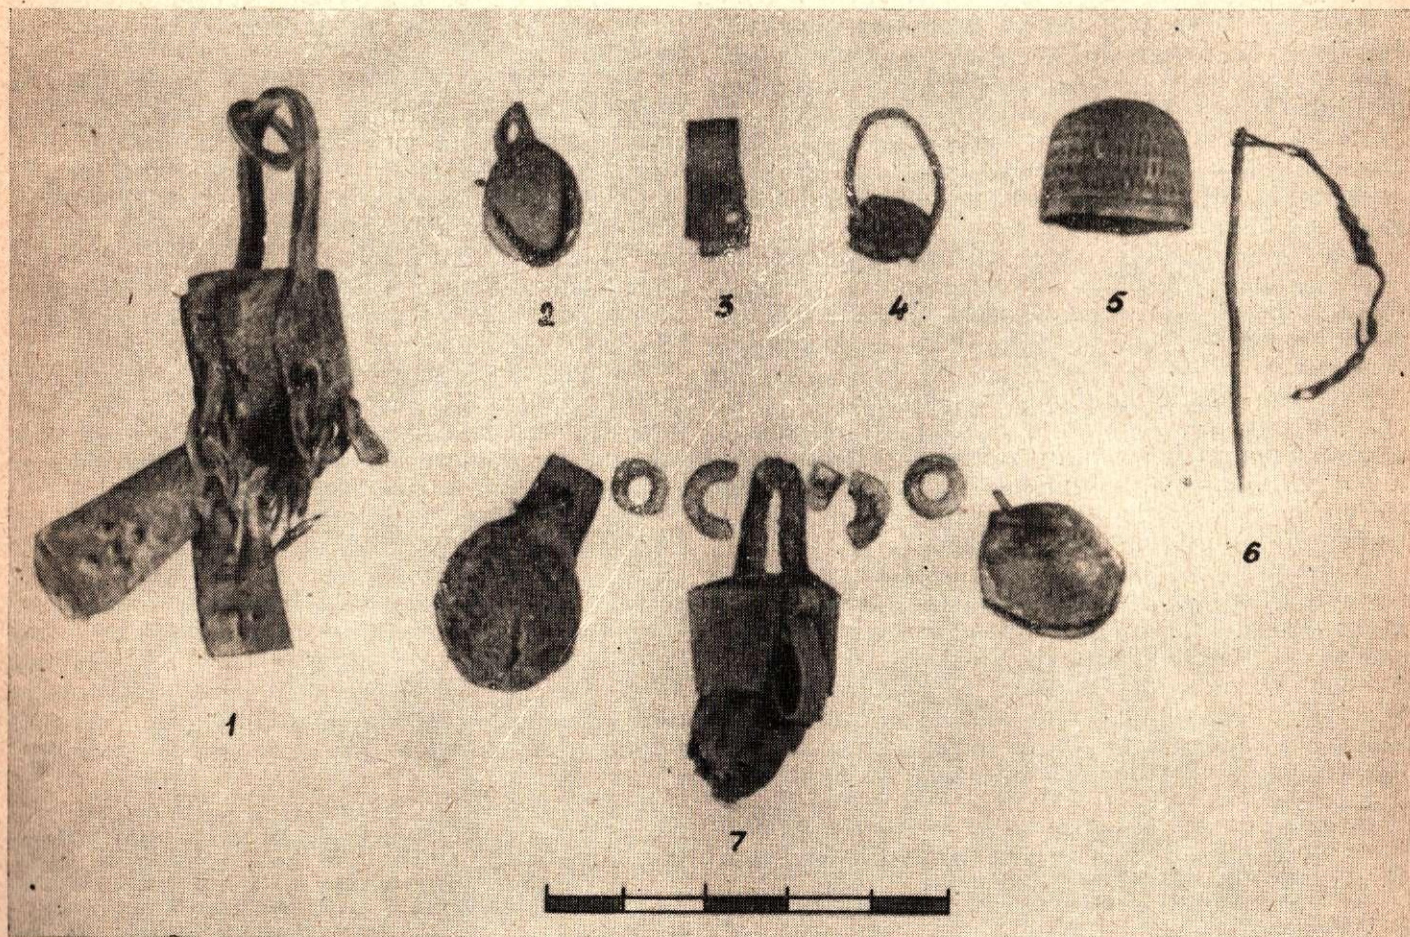 2 3 4 5
6
1
7